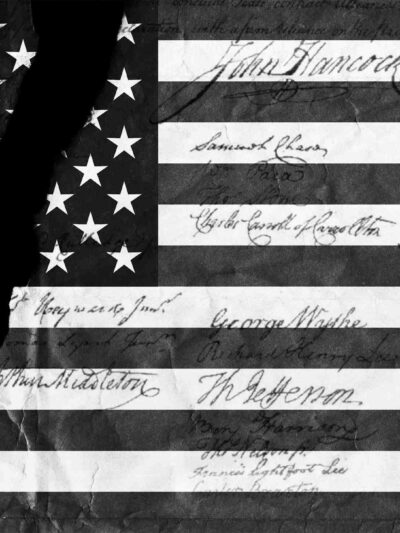 laration, with a firm reliance on the
John Hancock
Samuel Chase
Wm. Paca
Charles Carroll of Carrollton
Heyward Junr.
omas Lynch Junr.
rthur Middleton
George Wythe
Richard Henry Lee
Th Jefferson
Benj Harrison
Thos Nelson jr.
Francis Lightfoot Lee
Carter Braxton